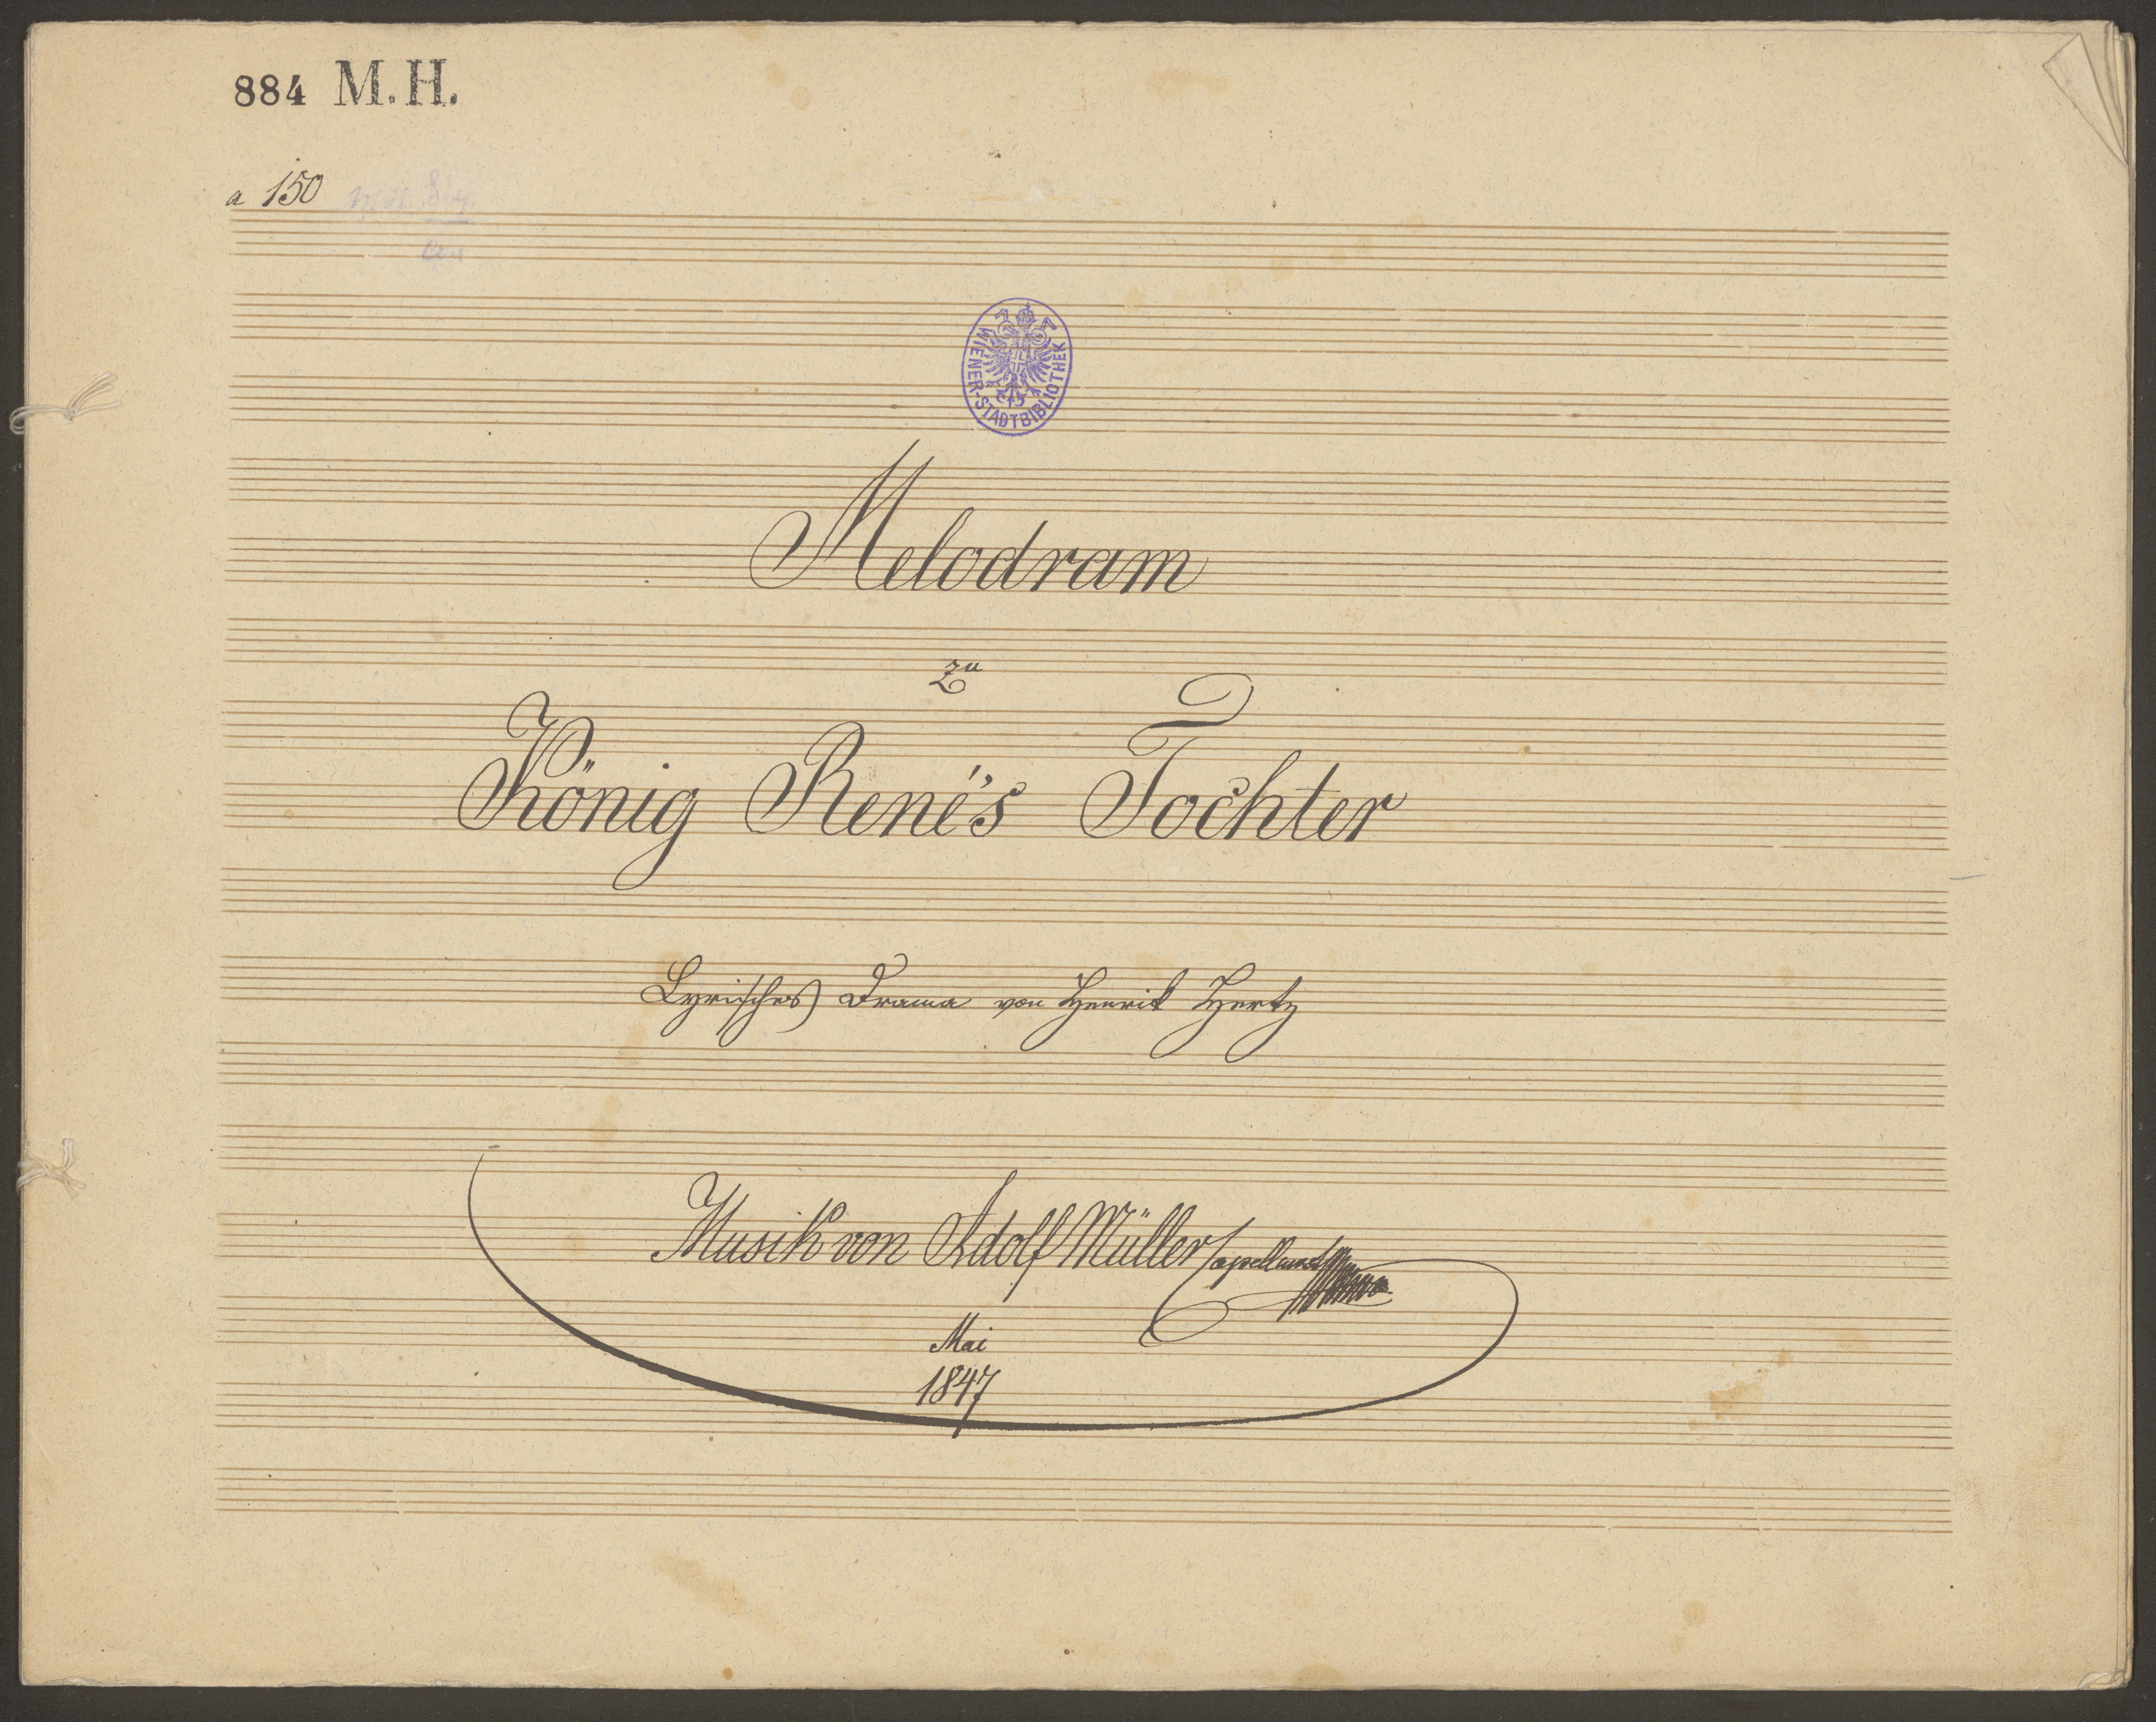 884 M.H.
a 150
WIENER-STADTBIBLIOTHEK
Melodram
zu
König René's Tochter
Lyrisches Drama von Henrik Hertz
Musik von Adolf Müller
Mai
1847